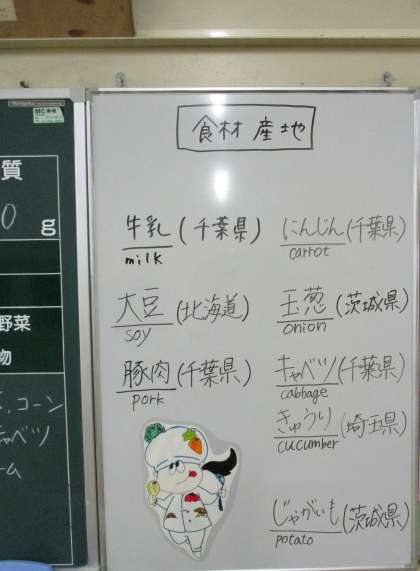 食材 産地
牛乳 (千葉県)
milk
大豆 (北海道)
soy
豚肉 (千葉県)
pork
にんじん (千葉県)
carrot
玉葱 (茨城県)
onion
キャベツ (千葉県)
cabbage
きゅうり (埼玉県)
cucumber
じゃがいも (茨城県)
potato
質
0 g
野菜
物
コーン
キャベツ
ーム